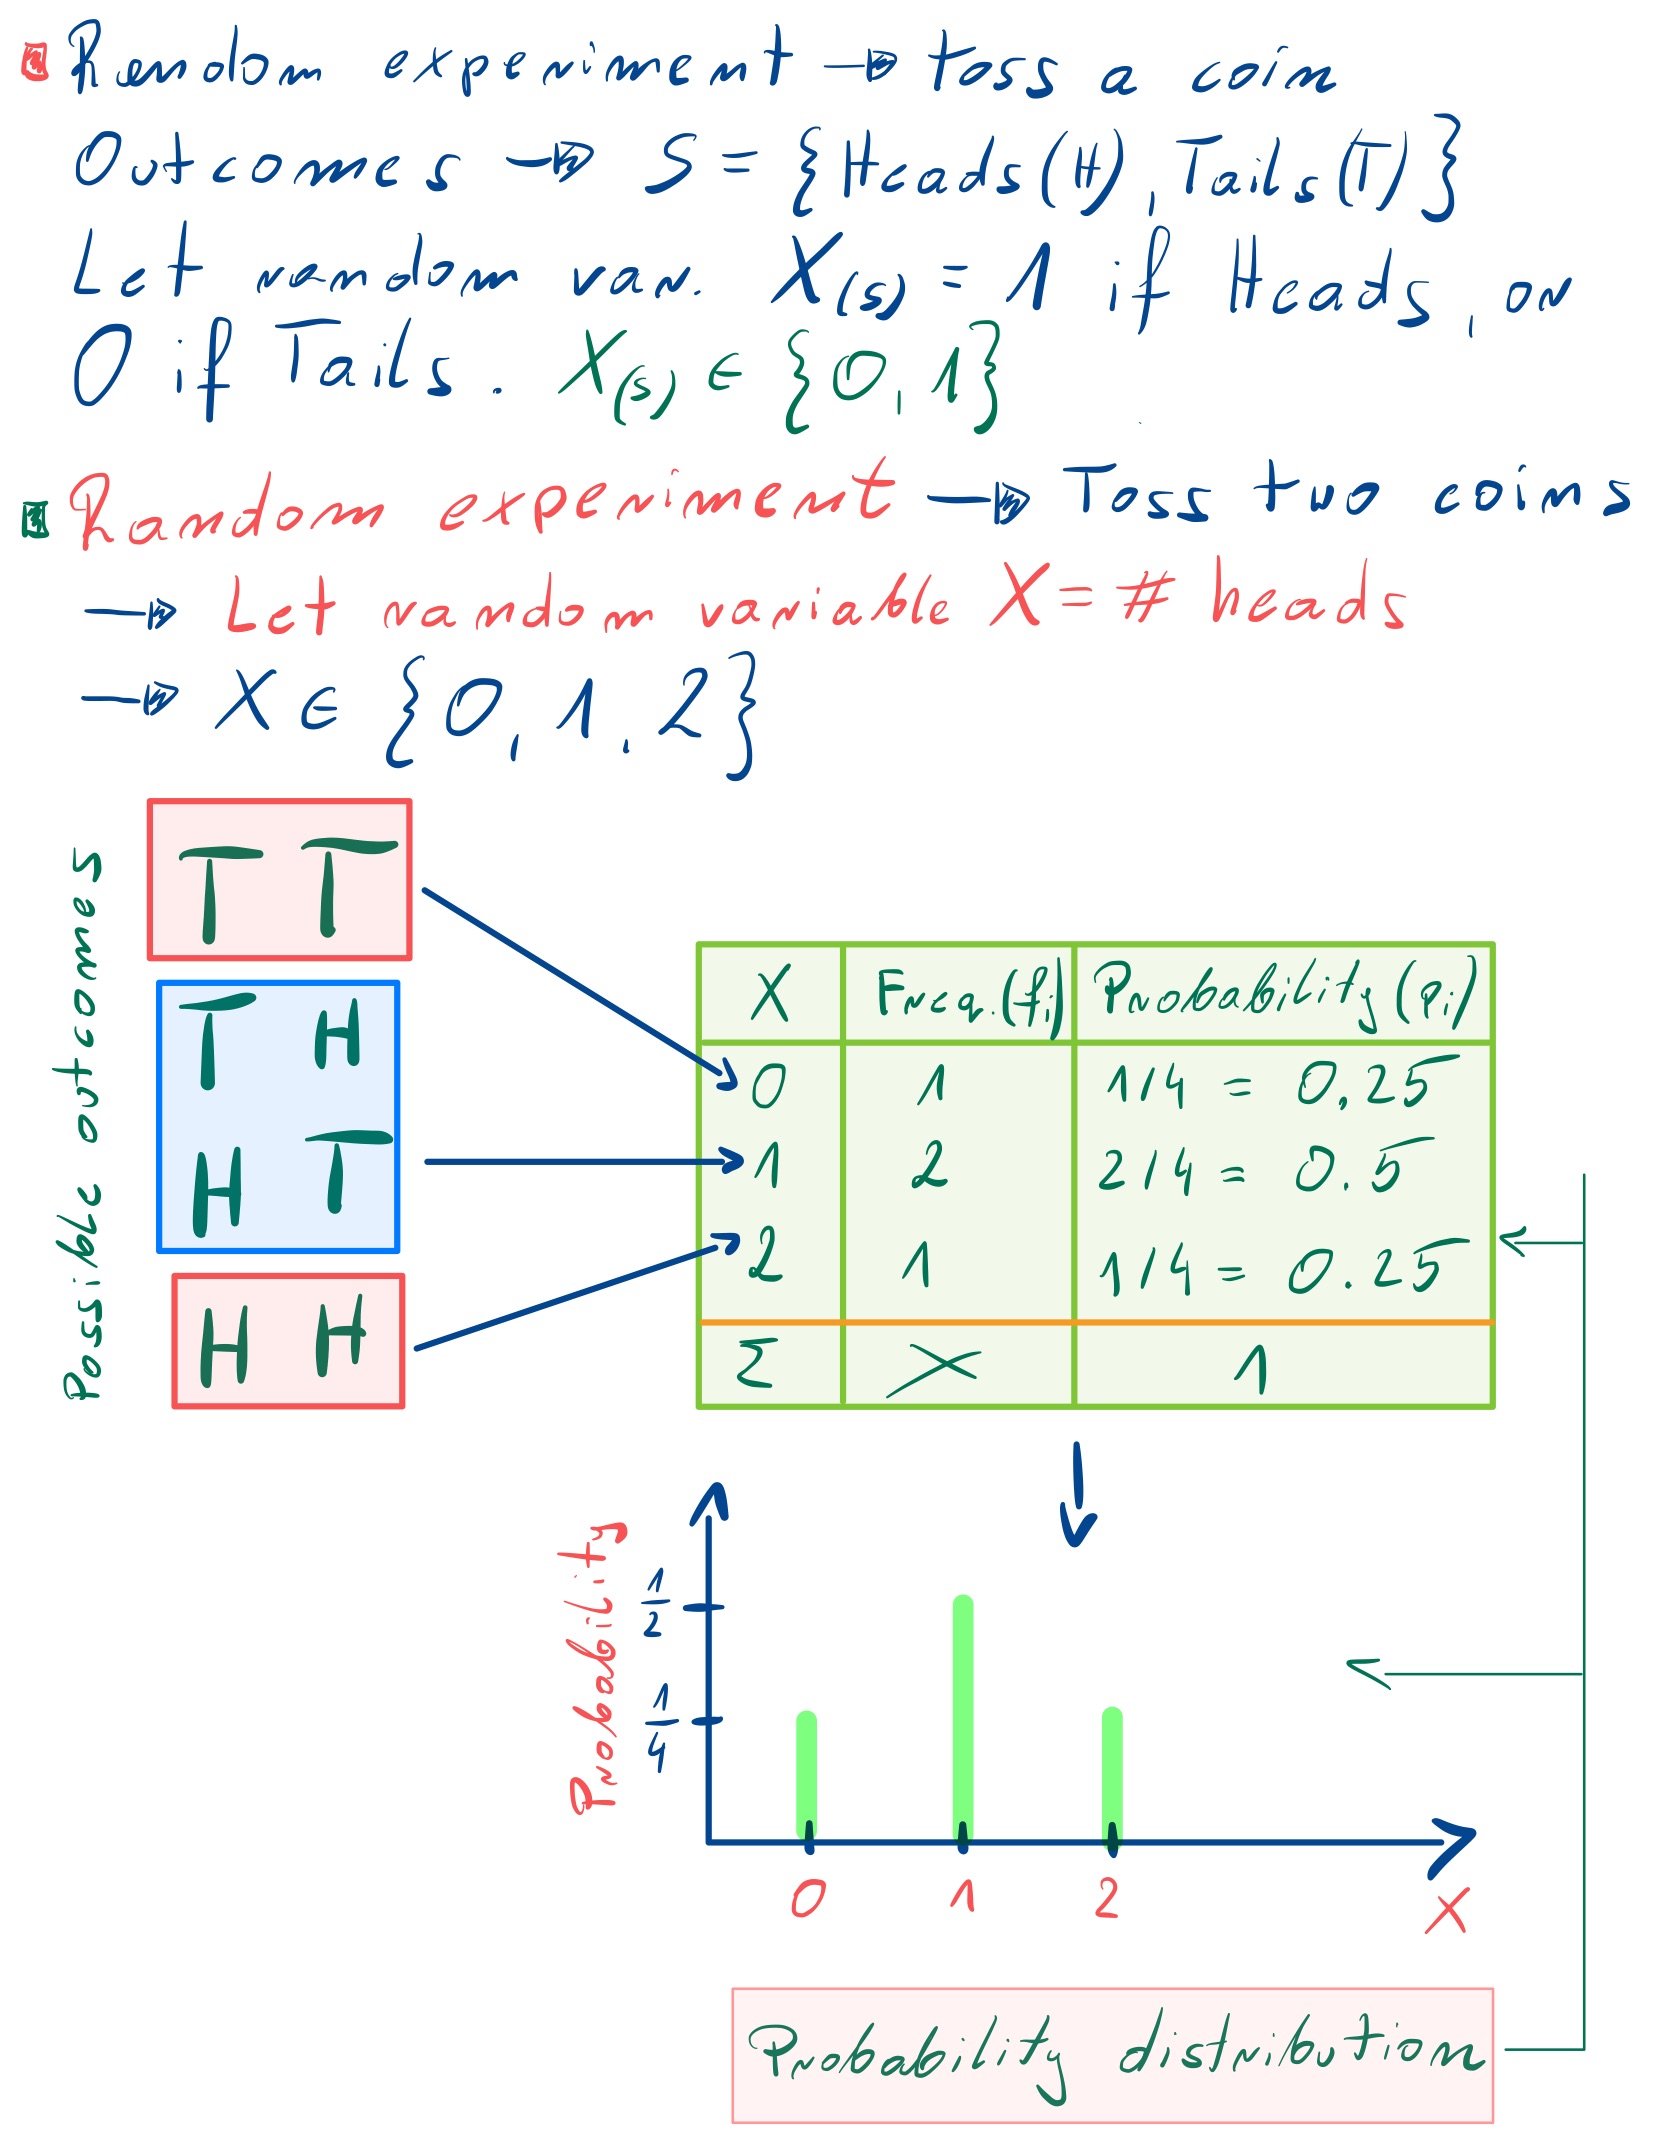 Random experiment → toss a coin
Outcomes → S = {Heads(H), Tails(T)}
Let random var. X(s) = 1 if Heads, or
0 if Tails. X(s) ∈ {0, 1}
Random experiment → Toss two coins
→ Let random variable X = # heads
→ X ∈ {0, 1, 2}
Possible outcomes
T T
T H
H T
H H
X Freq.(fi) Probability (pi)
0 1 1/4 = 0.25
1 2 2/4 = 0.5
2 1 1/4 = 0.25
Σ X 1
Probability
1/2
1/4
0 1 2 X
Probability distribution